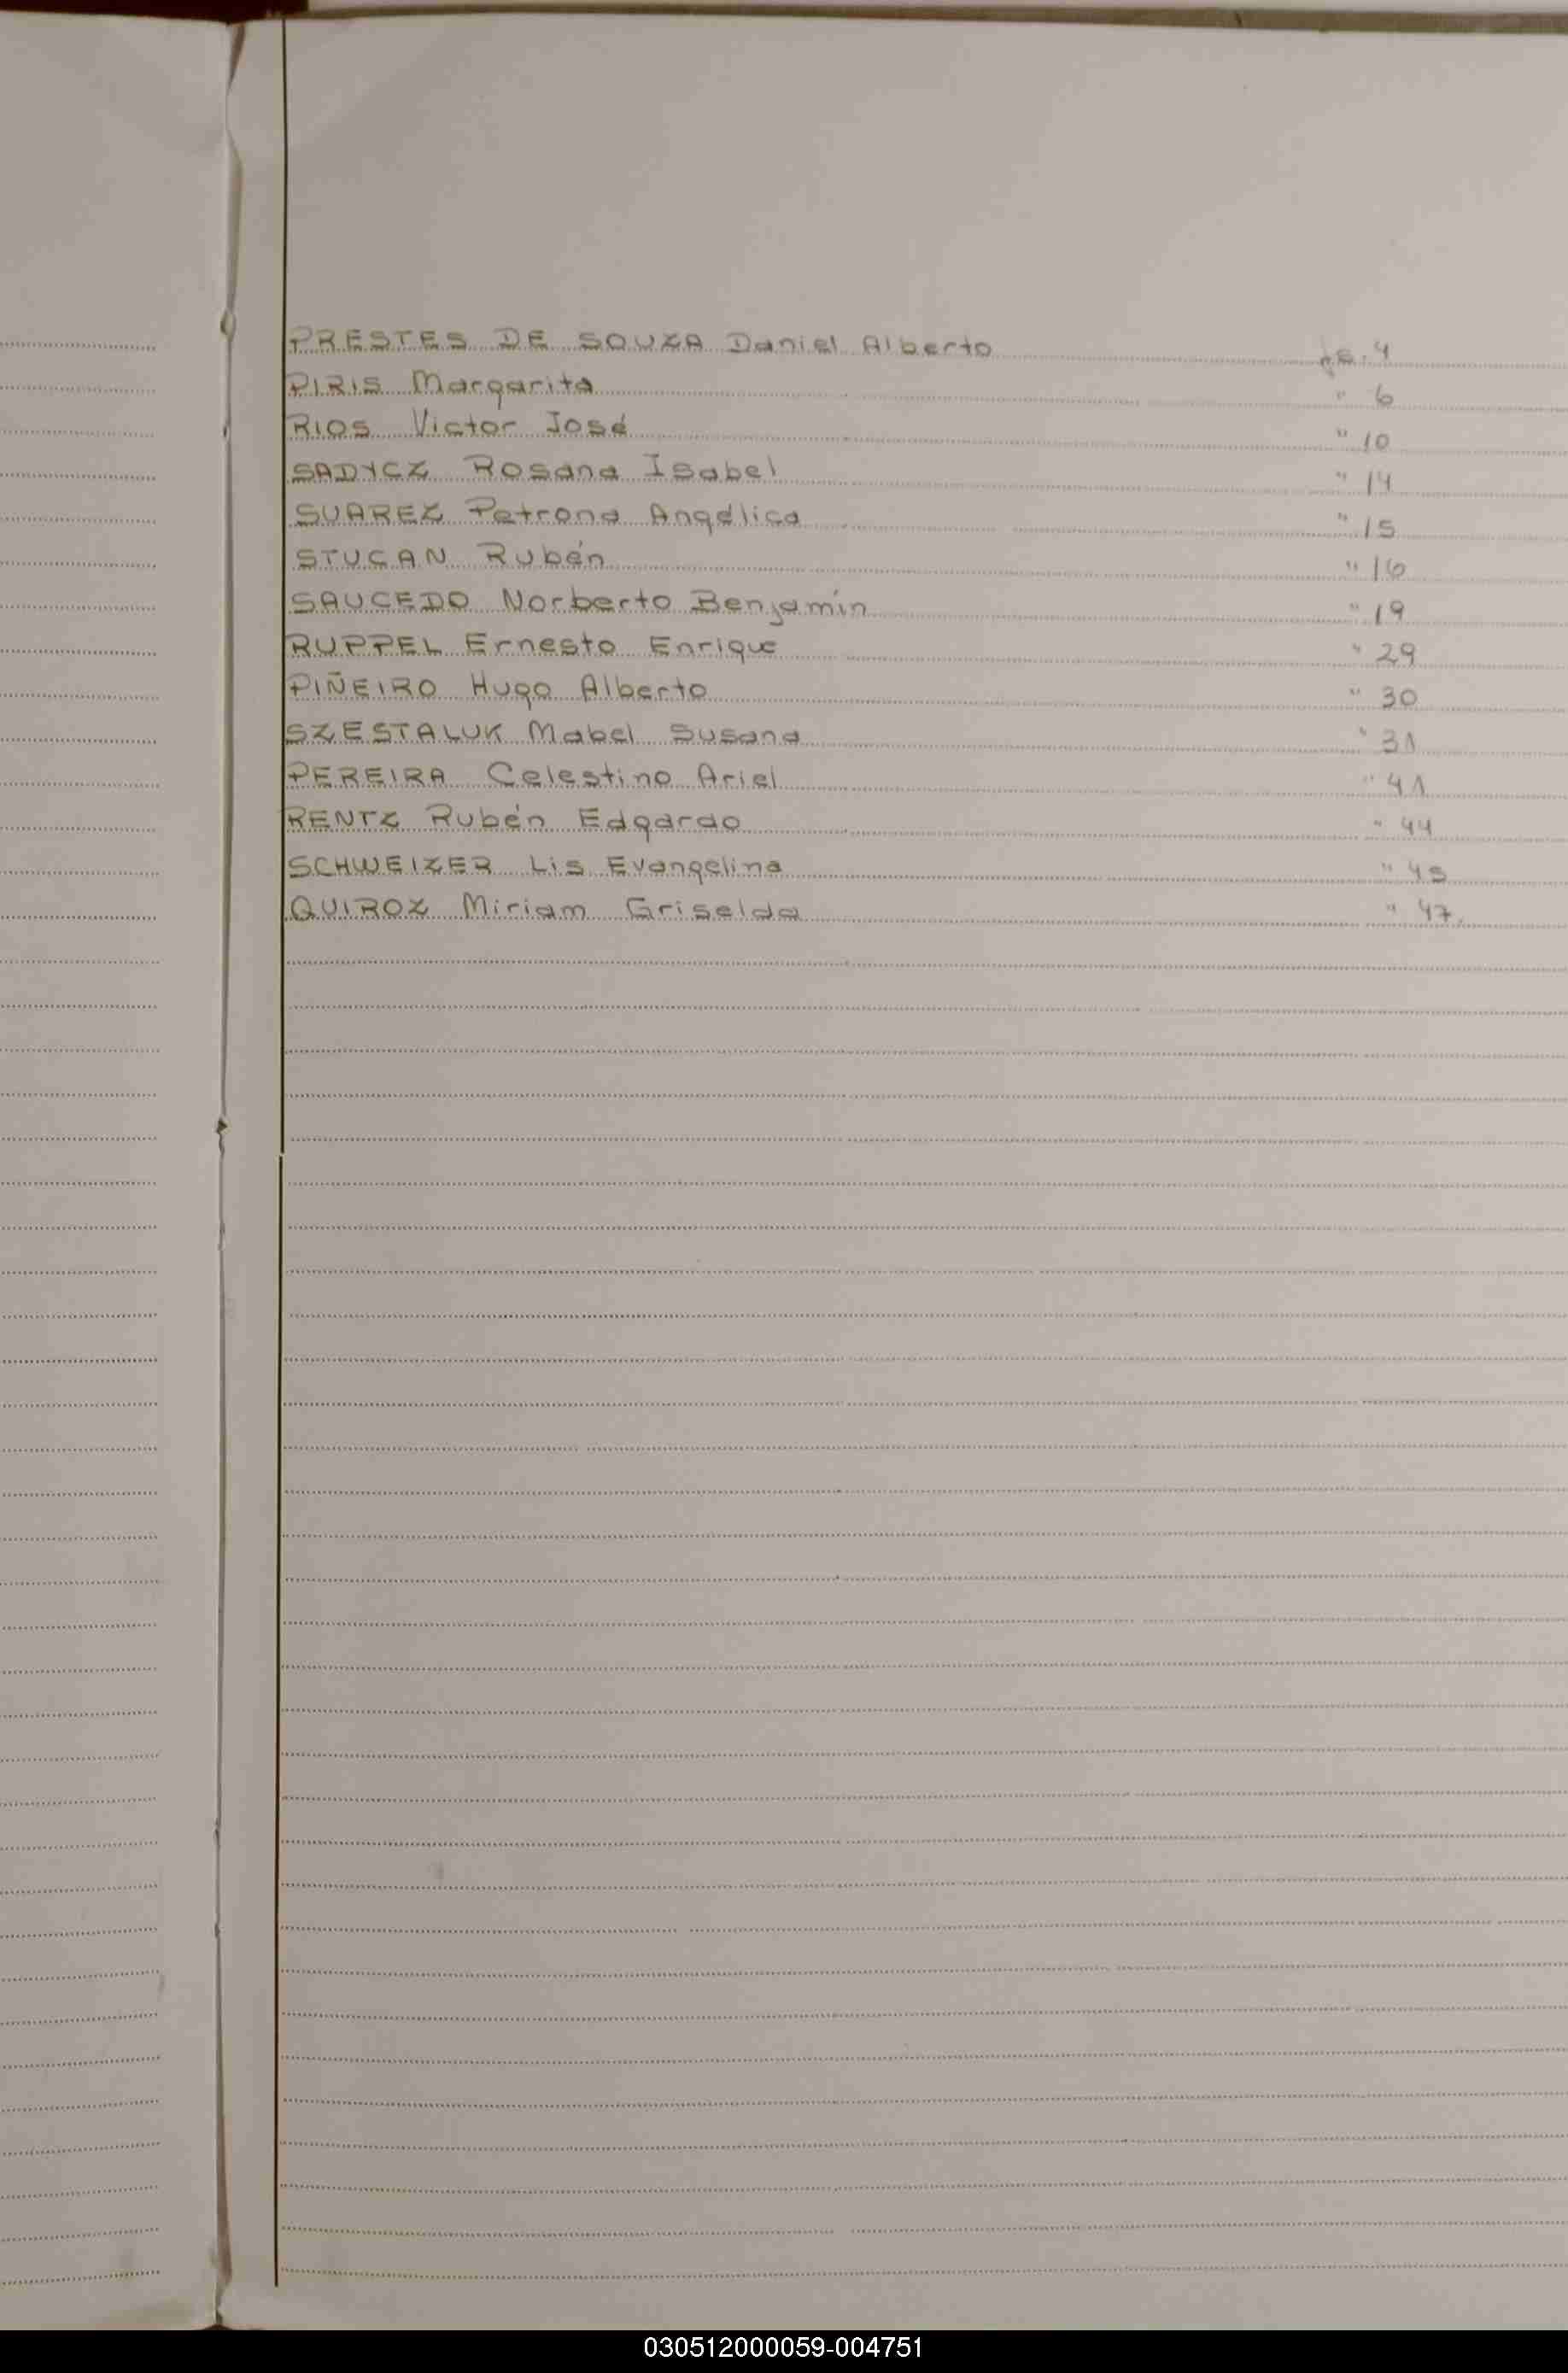 PRESTES DE SOUZA Daniel Alberto fs. 4
PIRIS Margarita " 6
RIOS Victor José " 10
SADYCZ Rosana Isabel " 14
SUAREZ Petrona Angélica " 15
STUCAN Rubén " 16
SAUCEDO Norberto Benjamín " 19
RUPPEL Ernesto Enrique " 29
PIÑEIRO Hugo Alberto " 30
SZESTALUK Mabel Susana " 31
PEREIRA Celestino Ariel " 41
RENTZ Rubén Edgardo " 44
SCHWEIZER Lis Evangelina " 45
QUIROZ Miriam Griselda " 47.
030512000059-004751